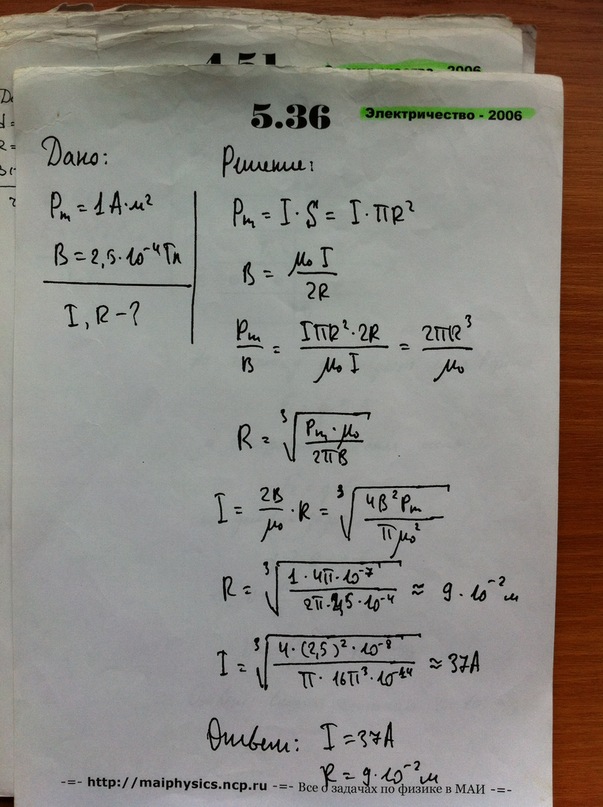 4.51
Электричество - 2006
5.36
Электричество - 2006
Дано:
Pm = 1 А·м²
B = 2,5·10⁻⁴ Тл
I, R - ?
Решение:
Pm = I · S = I · πR²
B = μ₀ I / 2R
Pm / B = IπR²·2R / μ₀ I = 2πR³ / μ₀
R = ∛(Pm·μ₀ / 2πB)
I = 2B / μ₀ · R = ∛(4B²Pm / πμ₀²)
R = ∛(1·4π·10⁻⁷ / 2π·2,5·10⁻⁴) ≈ 9·10⁻² м
I = ∛(4·(2,5)²·10⁻⁸ / π·16π²·10⁻¹⁴) ≈ 37А
Ответ: I = 37А
R = 9·10⁻² м
-=- http://maiphysics.ncp.ru -=- Все о задачах по физике в МАИ -=-